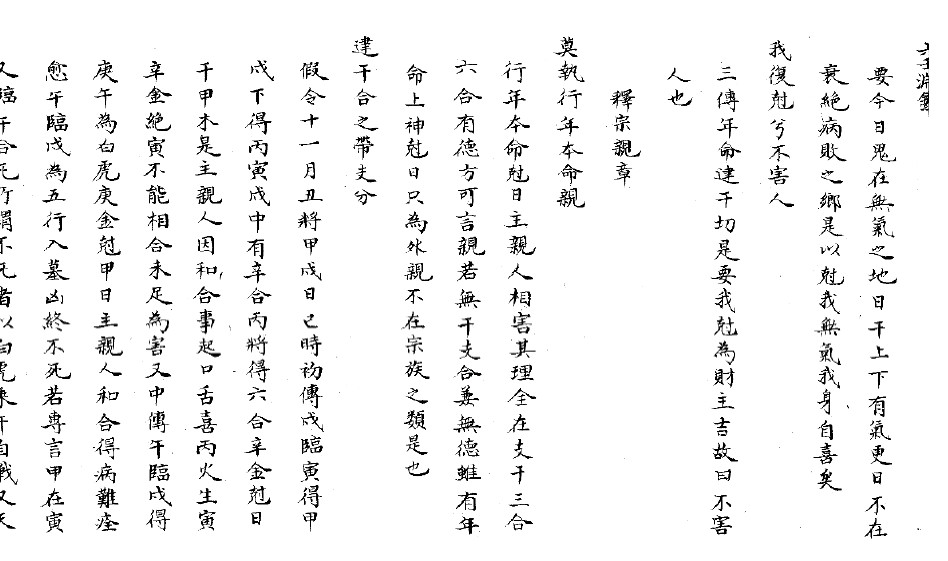 要今日鬼在無氣之地日干上下有氣更日不在
衰絶病敗之鄉是以尅我無氣我身自喜矣
我復尅兮不害人
三傳年命建干切是要我尅為財主吉故曰不害
人也
釋宗親章
莫執行年本命親
行年本命尅日主親人相害其理全在支干三合
六合有德方可言親若無干支合兼無德雖有年
命上神尅日只為外親不在宗族之類是也
建干合之帶支分
假令十一月丑將甲戌日巳時初傳戌臨寅得甲
戌下得丙寅戌中有辛合丙將得六合辛金尅日
干甲木是主親人因和合事起口舌喜丙火生寅
辛金絕寅不能相合未足為害又中傳午臨戌得
庚午為白虎庚金尅甲日主親人和合得病難痊
愈午臨戌為五行入墓凶終不死若專言甲在寅
又臨午合死所謂不死者以白虎乘午自戰又天